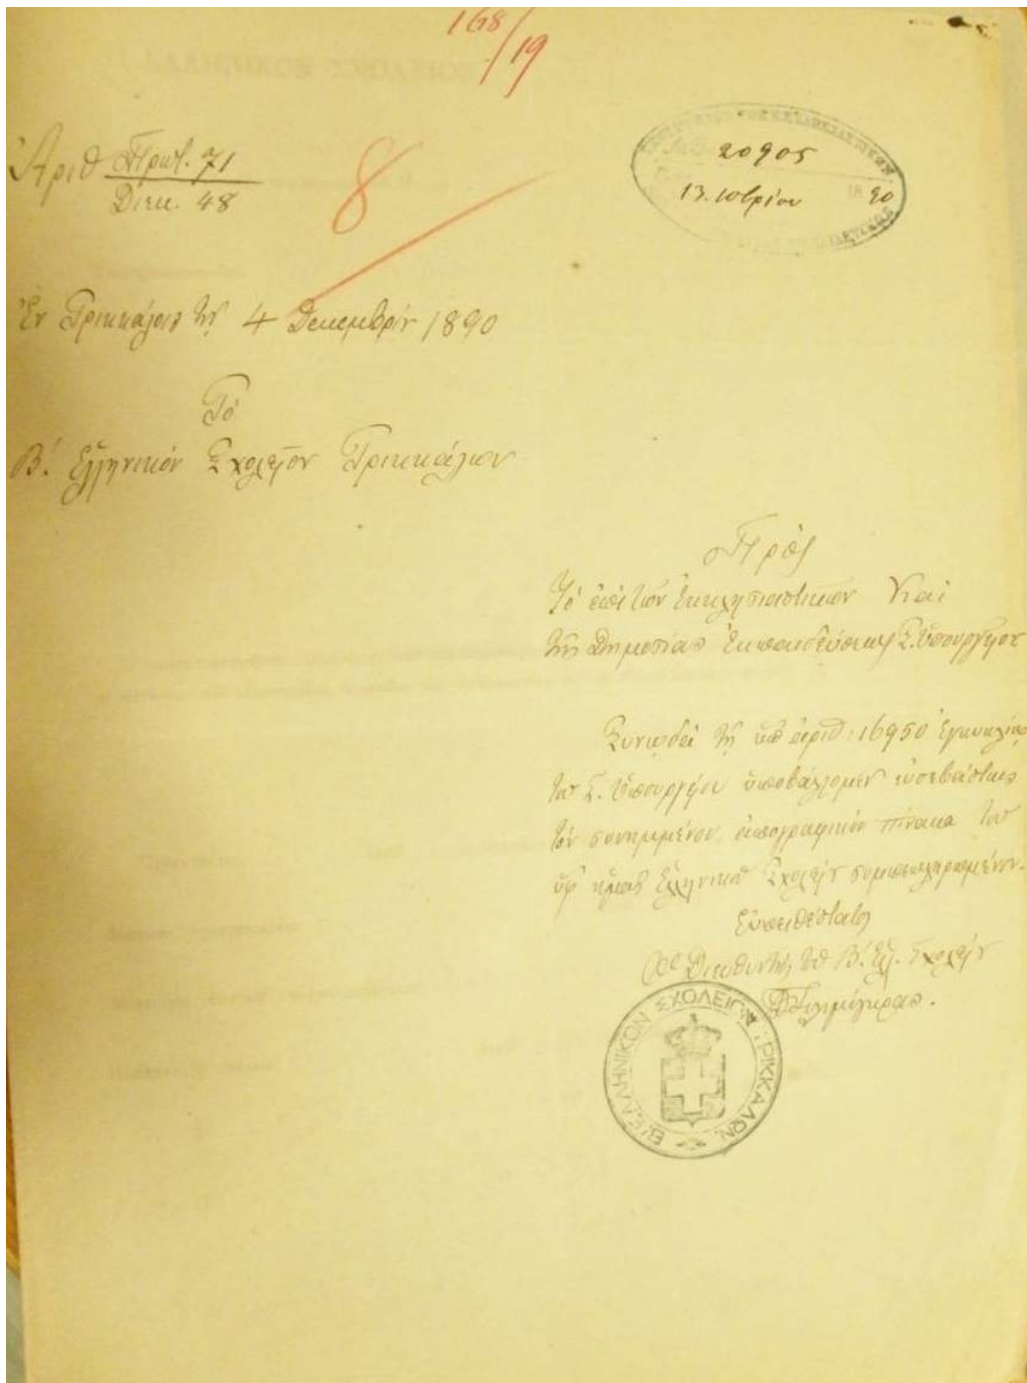 168/19
Ἀριθ Πρωτ. 71
Διεκ. 48
8
20905
13. 10βρίου 1890
Ἐν Τρικκάλοις τῇ 4 Δεκεμβρίου 1890
Τὸ
Β΄. Ἑλληνικόν Σχολεῖον Τρικκάλων
Πρὸς
Τὸ ἐπὶ τῶν Ἐκκλησιαστικῶν καὶ
τῆς Δημοσίας Ἐκπαιδεύσεως Σ. Ὑπουργεῖον
Συνῳδὰ τῇ ὑπ' ἀριθ: 16950 ἐγκυκλίῳ
τοῦ Σ. Ὑπουργείου ὑποβάλλομεν εὐσεβάστως
τὸν συνημμένον ἀπογραφικὸν πίνακα τοῦ
ὑφ' ἡμᾶς Ἑλληνικοῦ Σχολείου συμπεπληρωμένον.
Εὐπειθέστατος
Ὁ Διευθυντὴς τοῦ Β΄. Ἑλ. Σχολείου
Β΄ ΕΛΛΗΝΙΚΟΝ ΣΧΟΛΕΙΟΝ ΤΡΙΚΚΑΛΩΝ